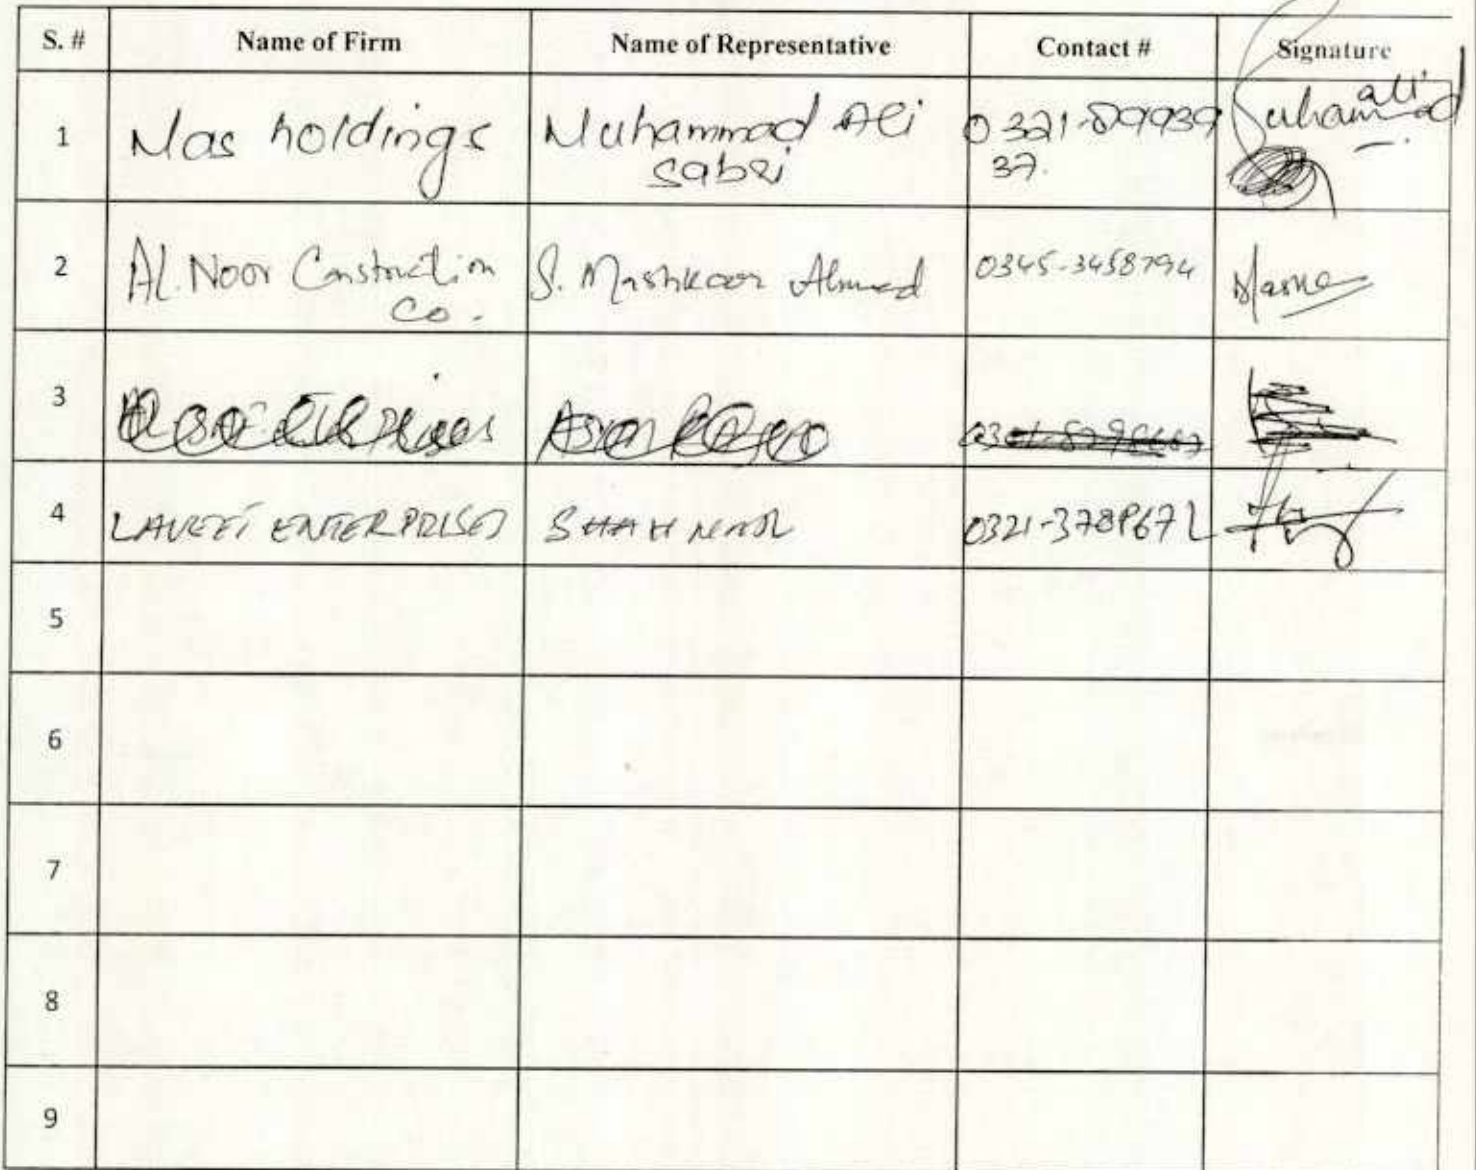 S. # Name of Firm Name of Representative Contact # Signature
1 Mas holdings Muhammad Ali 0321-89939 Muhammad ali
sabri 37.
2 AL. Noor Construction S. Mashkoor Ahmed 0345-3458794
Co.
3
4 ENTERPRISES SHAH 0321-3789672
5
6
7
8
9